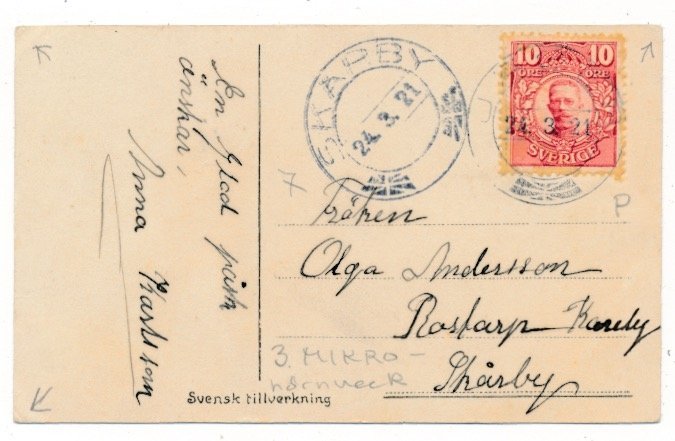 En glad påsk
önskar,
Anna Karlsson
SKARBY
24. 3. 21
10 10
ÖRE ÖRE
24. 3. 21
SVERIGE
7
P
Fröken
Olga Andersson
Rostarp Kareby
Skårby
3. MIKRO-
hörnveck
Svensk tillverkning